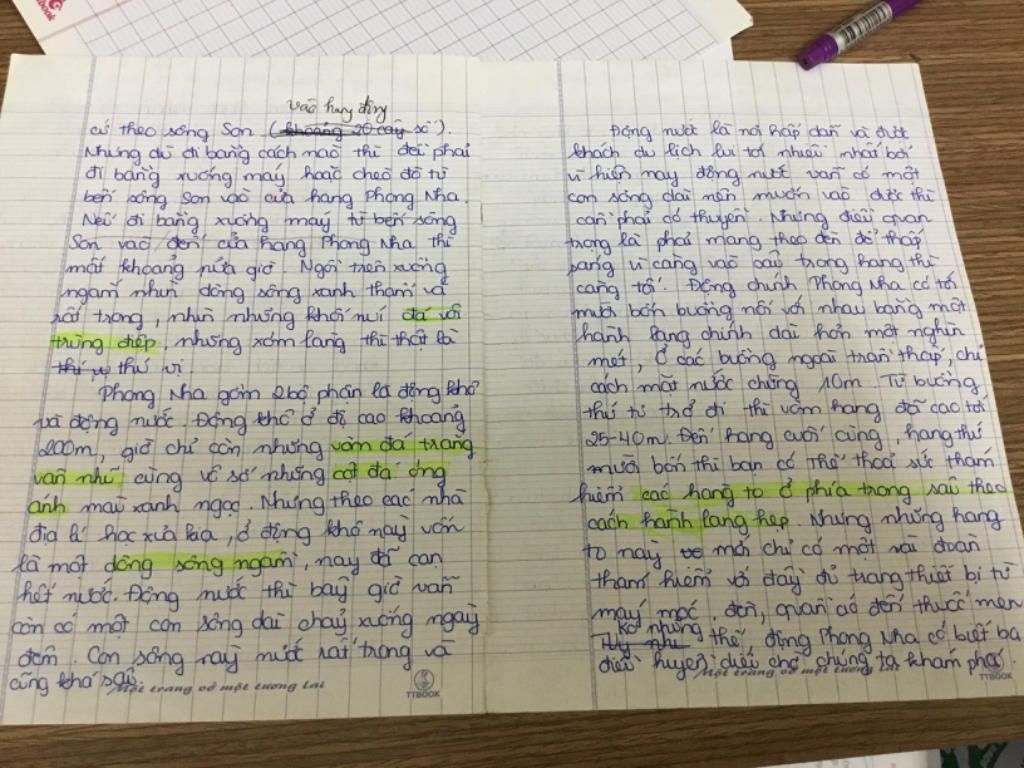 vào hang động
cứ theo sông Son (khoảng 20 cây số).
Nhưng dù đi bằng cách nào thì đều phải
đi bằng xuồng máy hoặc chèo đò từ
bến sông Son vào cửa hang Phong Nha.
Nếu đi bằng xuồng máy từ bến sông
Son vào đến cửa hang Phong Nha thì
mất khoảng nửa giờ. Ngồi trên xuồng
ngắm nhìn dòng sông xanh thẳm và
rất trong, nhìn những khối núi đá vôi
trùng điệp, những xóm làng thì thật là
thú vị thú vị.
Phong Nha gồm 2 bộ phận là động khô
và động nước. Động khô ở độ cao khoảng
200m, giờ chỉ còn những vòm đá trắng
vân nhũ cùng vô số những cột đá óng
ánh màu xanh ngọc. Nhưng theo các nhà
địa lí học xưa kia, ở động khô này vốn
là một dòng sông ngầm, nay đã cạn
hết nước. Động nước thì bây giờ vẫn
còn có một con sông dài chảy xuống ngày
đêm. Con sông này nước rất trong và
cũng khá sâu.
Một trang vở một tương lai
TTBOOK
Động nước là nơi hấp dẫn và được
khách du lịch lui tới nhiều nhất bởi
vì hiện nay động nước vẫn có một
con sông dài nên muốn vào được thì
cần phải có thuyền. Nhưng điều quan
trọng là phải mang theo đèn để thắp
sáng vì càng vào sâu trong hang thì
càng tối. Động chính Phong Nha có tới
mười bốn buồng nối với nhau bằng một
hành lang chính dài hơn một nghìn
mét, ở các buồng ngoài trần thấp, chỉ
cách mặt nước chừng 10m. Từ buồng
thứ tư trở đi thì vòm hang đã cao tới
25-40m. Đến hang cuối cùng, hang thứ
mười bốn thì bạn có thể thoả sức thám
hiểm các hang to ở phía trong sâu theo
cách hành lang hẹp. Nhưng những hang
to này mới chỉ có một vài đoàn
thám hiểm với đầy đủ trang thiết bị từ
máy móc, đèn, quần áo đến thuốc men
thế động Phong Nha có biết ba
điều huyền diệu chờ chúng ta khám phá.
Một trang vở một tương lai
TTBOOK